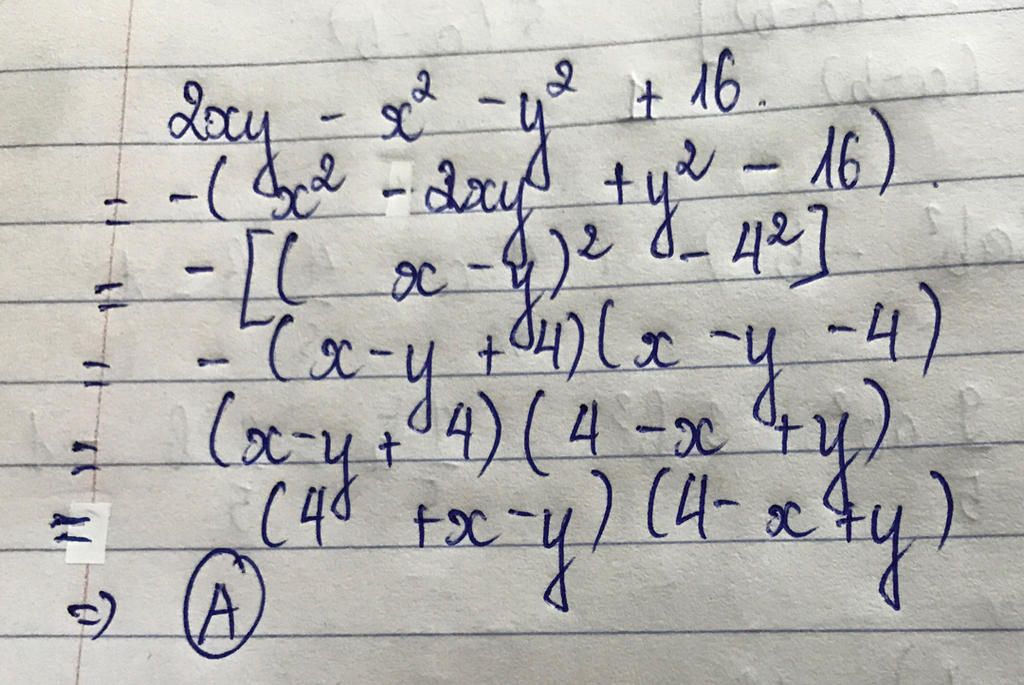 2xy - x² - y² + 16.
= -( x² - 2xy + y² - 16).
= - [( x - y)² - 4²]
= - (x - y + 4)(x - y - 4)
= (x - y + 4)(4 - x + y)
= (4 + x - y)(4 - x + y)
=> A